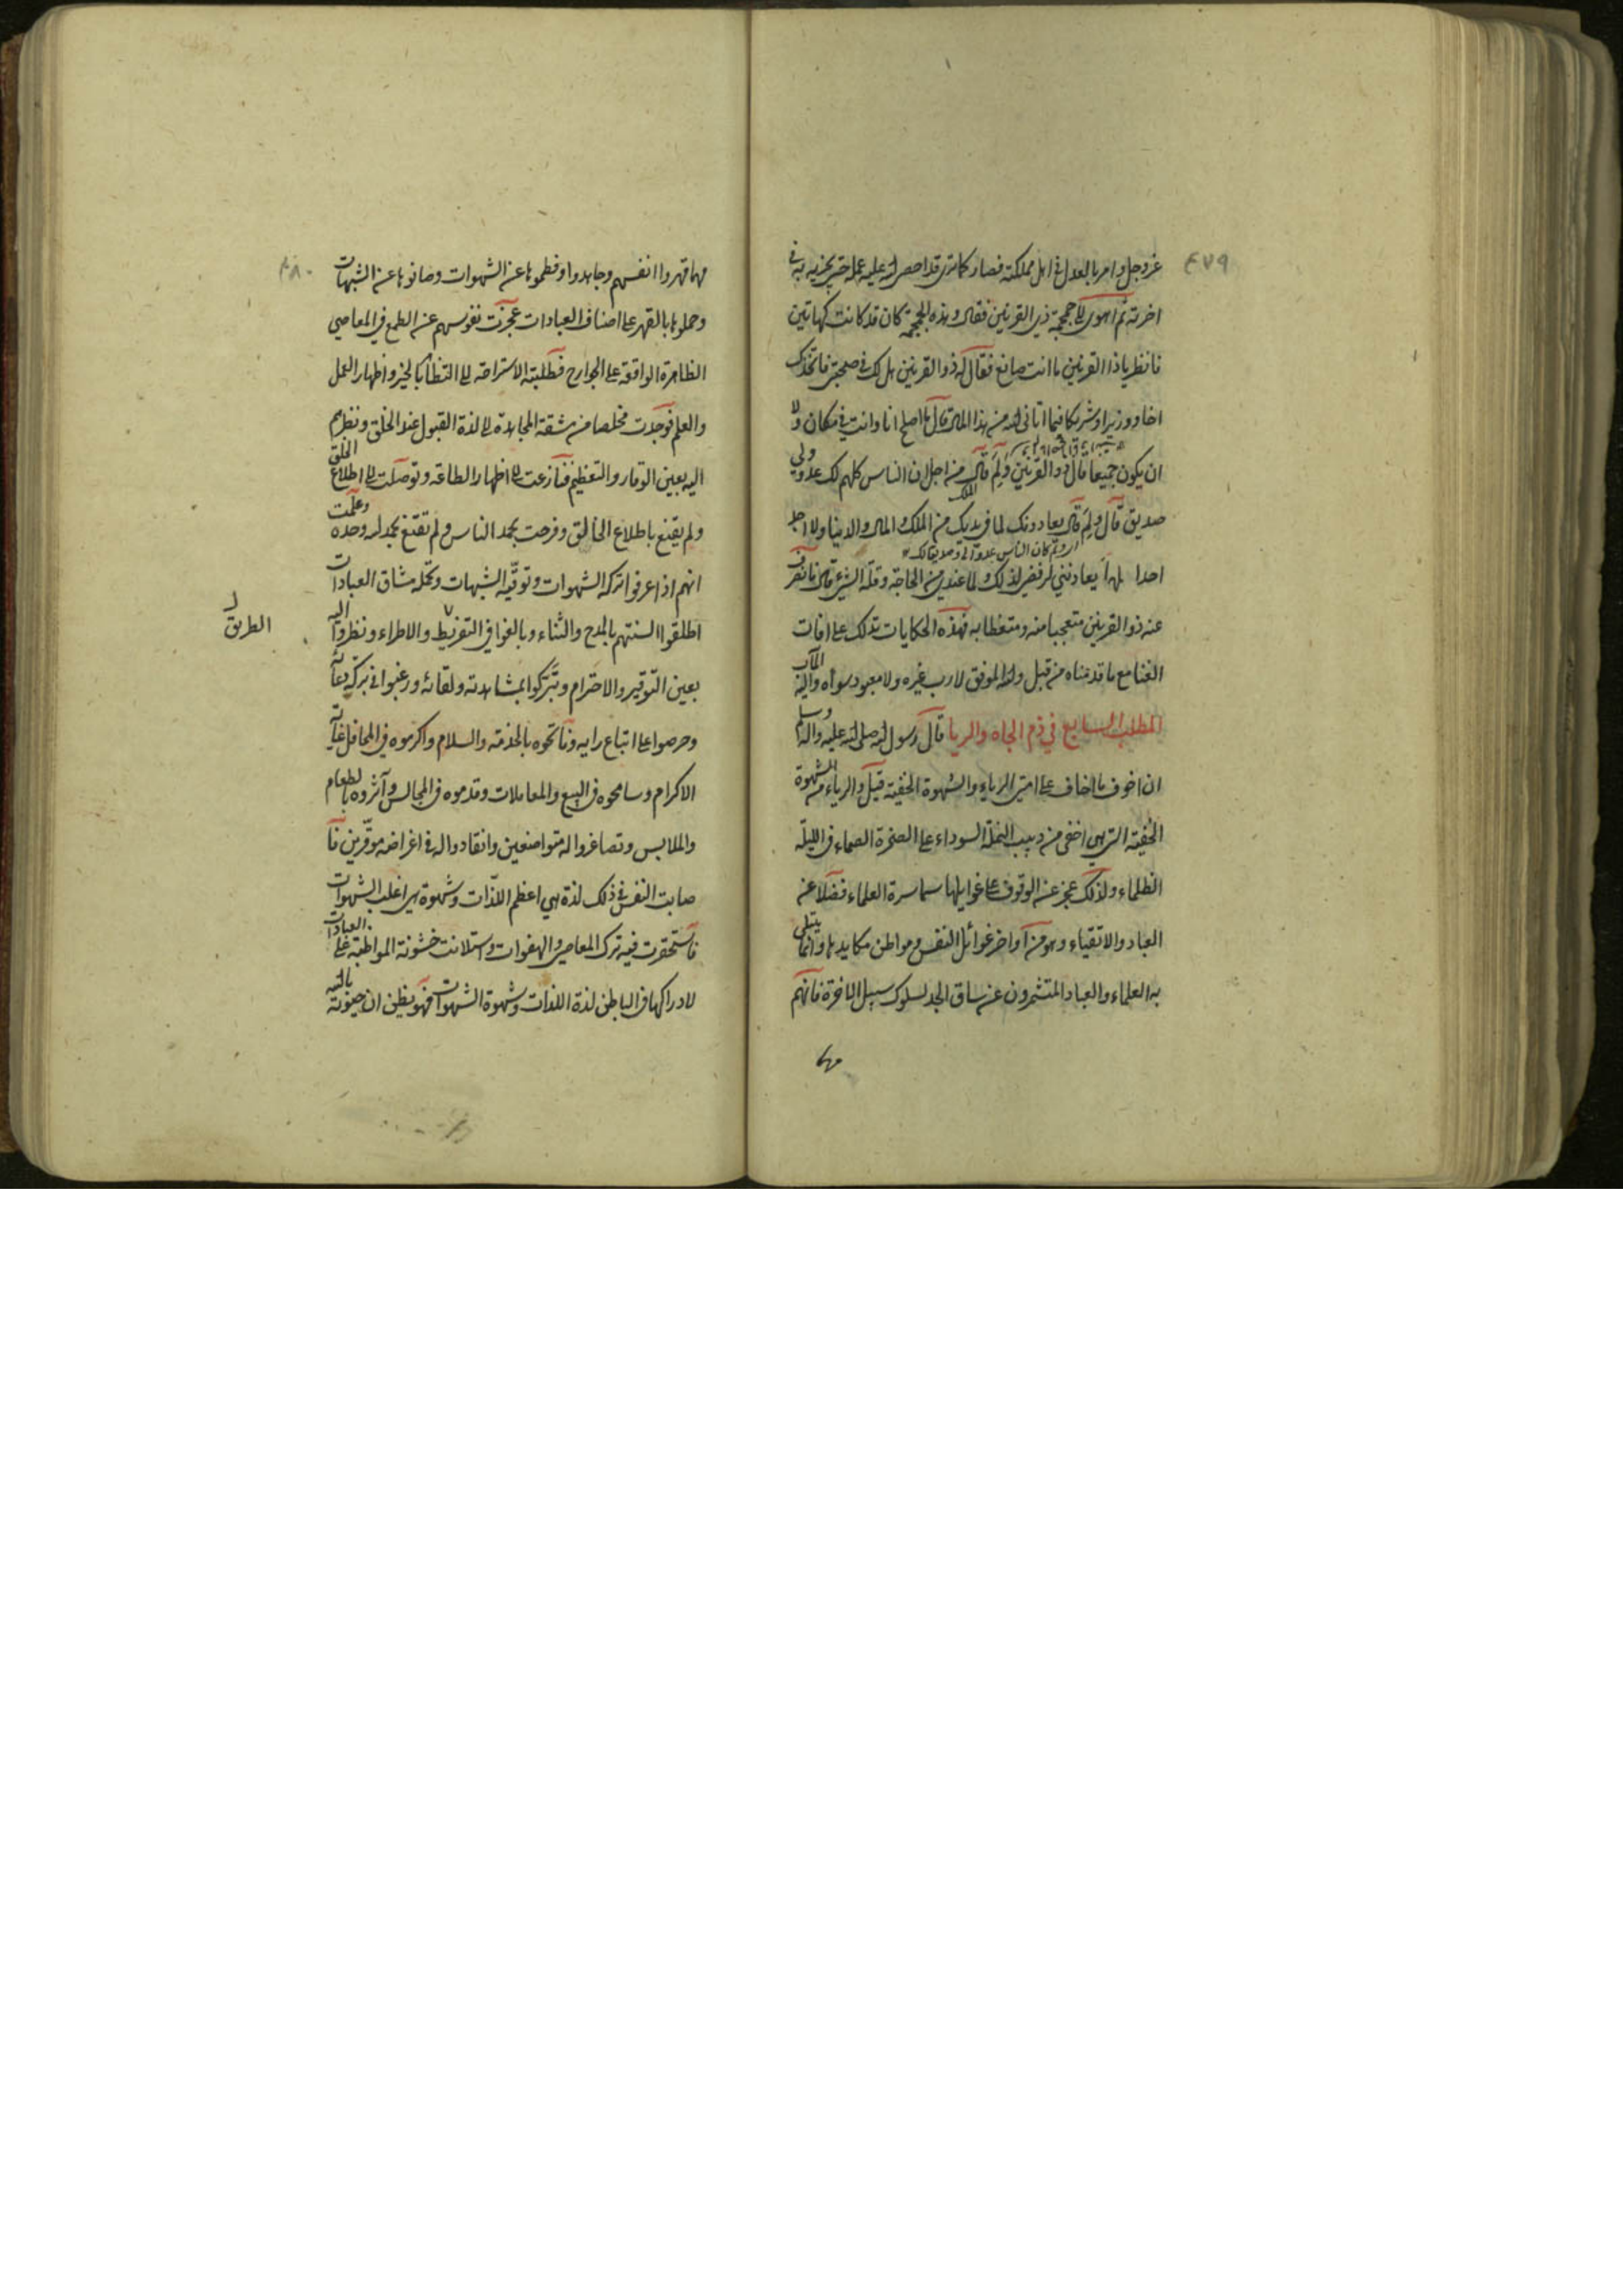 ٤٧٩
عزوجل وامر بالعدل في اهل مملكته فصار كما ترى قد احصى الله عليه عمله حتى يجزيه به في
اخرته ثم اهوى الى جمجمة ذي القرنين فقال وهذه الجمجمة كان قد كانت كهاتين
فانظر ياذا القرنين ما انت صانع فقال له ذو القرنين هل لك في صحبتي فاتخذك
اخا ووزيرا وشريكا فيما اتاني الله من هذا المال قال ما اصلح انا وانت في مكان ولا
ان يكون جميعا قال ذو القرنين ولم قال من اجل ان الناس كلهم لك عدو ولي
صديق قال ولم قال يعادونك لما في يديك من الملك والمال والدنيا ولا اجد
احدا يعاديني لرفضي لذلك ولما عندي من الحاجة وقلة الشيء قال فانصرف
عنه ذو القرنين متعجبا منه ومتعظا به فهذه الحكايات تدلك على افات
الغنا مع ما قدمناه من قبل والله الموفق لا رب غيره ولا معبود سواه واليه المآب
المطلب السابع في ذم الجاه والريا قال رسول الله صلى الله عليه واله وسلم
ان اخوف ما اخاف على امتي الرياء والشهوة الخفية قيل والرياء من الشهوة
الخفية التي هي اخفى من دبيب النملة السوداء على الصخرة الصماء في الليلة
الظلماء ولذلك عجز عن الوقوف على غوايلها سماسرة العلماء فضلا عن
العباد والاتقياء وهو من آواخر غوائل النفس ومواطن مكايدها وانما يبتلى
به العلماء والعباد المتشمرون عن ساق الجد لسلوك سبيل الاخرة فانهم
مهما
٤٨٠
مهما قهروا انفسهم وجاهدوا وفطموها عن الشهوات وصانوها عن الشبهات
وحملوها بالقهر على اصناف العبادات عجزت نفوسهم عن الطمع في المعاصي
الظاهرة الواقعة على الجوارح فطلبت الاستراحة الى التظاهر بالخير واظهار العمل
والعلم فوجدت مخلصا من مشقة المجاهدة الى لذة القبول عند الخلق ونظرهم
اليه بعين الوقار والتعظيم فنازعت الى اظهار الطاعة وتوصلت الى اطلاع الخلق
ولم يقنع باطلاع الخالق وفرحت بحمد الناس ولم تقنع بحمد الله وحده وعلمت
انهم اذا عرفوا تركه الشهوات وتوقيه الشبهات وتحمله مشاق العبادات
اطلقوا السنتهم بالمدح والثناء وبالغوا في التقريظ والاطراء ونظروا اليه
الطريق
بعين التوقير والاحترام وتبركوا بمشاهدته ولقائه ورغبوا في بركة دعائه
وحرصوا على اتباع رايه وفاتحوه بالخدمة والسلام واكرموه في المحافل غاية
الاكرام وسامحوه في البيع والمعاملات وقدموه في المجالس وآثروه بالطعام
والملابس وتصاغروا له متواضعين وانقادوا له في اغراضه موقرين فا
صابت النفس في ذلك لذة هي اعظم اللذات وشهوة هي اغلب الشهوات
فاستحقرت فيه ترك المعاصي والهفوات واستلانت خشونة المواظبة على العبادات
لادراكها في الباطن لذة اللذات وشهوة الشهوات فهو يظن ان حيوته بالله